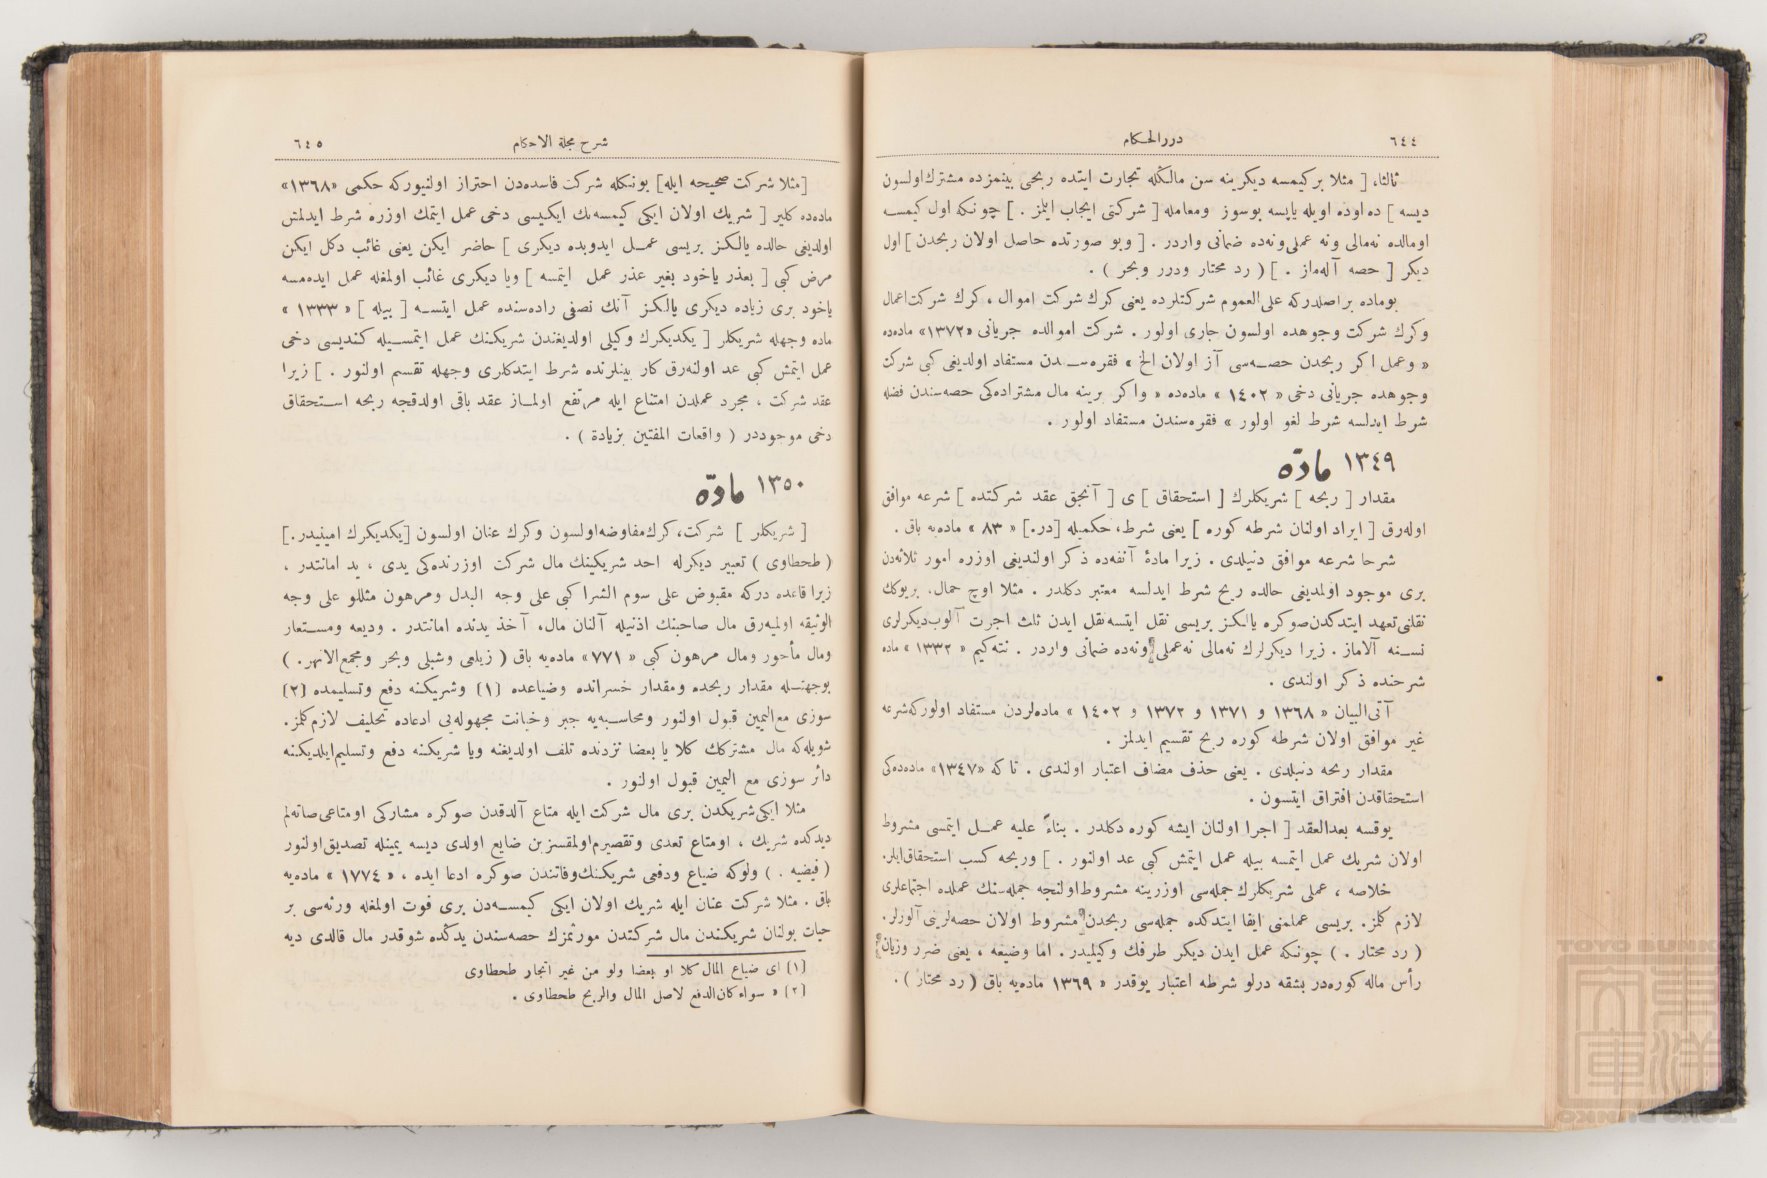 ٦٤٤
دررالحكام
ثالثا، [ مثلا بر كيمسه ديكرينه سن مالكله تجارت ايتده ربحى بينمزده مشترك اولسون
ديسه ] ده اوده اويله ياپسه بوسوز ومعامله [ شركتى ايجاب ايلمز . ] چونكه اول كيمسه
اومالده نه‌مالى ونه عملى ونه‌ده ضمانى واردر . [ وبو صورتده حاصل اولان ربحدن ] اول
ديكر [ حصه آله‌ماز . ] ( رد محتار ودرر وبحر ) .
بوماده بر اصلدركه على‌العموم شركتلرده يعنى كرك شركت اموال ، كرك شركت اعمال
وكرك شركت وجوهده اولسون جارى اولور . شركت اموالده جريانى «١٣٧٢» ماده‌ده
« وعمل اكر ربحدن حصه‌سى آز اولان الخ » فقره‌سندن مستفاد اولديغى كبى شركت
وجوهده جريانى دخى « ١٤٠٢ » ماده‌ده « واكر برينه مال مشتراده‌كى حصه‌سندن فضله
شرط ايدلسه شرط لغو اولور » فقره‌سندن مستفاد اولور .
١٣٤٩ مادّه
مقدار [ ربحه ] شريكلرك [ استحقاق ] ى [ آنجق عقد شركتده ] شرعه موافق
اوله‌رق [ ايراد اولنان شرطه كوره ] يعنى شرط، حكميله [در.] « ٨٣ » ماده‌يه باق .
شرحا شرعه موافق دنيلدى . زيرا مادۀ آنفه‌ده ذكر اولنديغى اوزره امور ثلاثه‌دن
برى موجود اولمديغى حالده ربح شرط ايدلسه معتبر دكلدر . مثلا اوچ حمال، بريوكك
نقلنى تعهد ايتدكدن صوكره يالكز بريسى نقل ايتسه نقل ايدن ثلث اجرت آلوب ديكرلرى
نسنه آلاماز . زيرا ديكرلرك نه‌مالى نه‌عملى ونه‌ده ضمانى واردر . نته‌كيم « ١٣٣٢ » ماده
شرحنده ذكر اولندى .
آتى‌البيان « ١٣٦٨ و ١٣٧١ و ١٣٧٢ و ١٤٠٢ » ماده‌لردن مستفاد اولوركه شرعه
غير موافق اولان شرطه كوره ربح تقسيم ايدلمز .
مقدار ربحه دنيلدى . يعنى حذف مضاف اعتبار اولندى . تا كه «١٣٤٧» ماده‌ده‌كى
استحقاقدن افتراق ايتسون .
يوقسه بعدالعقد [ اجرا اولنان ايشه كوره دكلدر . بناءً عليه عمل ايتمسى مشروط
اولان شريك عمل ايتمسه بيله عمل ايتمش كبى عد اولنور . ] وربحه كسب استحقاق ايلر.
خلاصه ، عملى شريكلرك جمله‌سى اوزرينه مشروط اولنجه جمله‌سنك عملده اجتماعلرى
لازم كلمز. بريسى عملمنى ايفا ايتدكده جمله‌سى ربحدن مشروط اولان حصه‌لرينى آلورلر.
( رد محتار . ) چونكه عمل ايدن ديكر طرفك وكيليدر. اما وضيعه ، يعنى ضرر وزيان
رأس ماله كوره‌در بشقه درلو شرطه اعتبار يوقدر « ١٣٦٩ ماده‌يه باق ( رد محتار ) .
شرح مجلة الاحكام
٦٤٥
[مثلا شركت صحيحه ايله] بوننكله شركت فاسده‌دن احتراز اولنيوركه حكمى «١٣٦٨»
ماده‌ده كلير [ شريك اولان ايكى كيمسه‌نك ايكيسى دخى عمل ايتمك اوزره شرط ايدلمش
اولديغى حالده يالكز بريسى عمل ايدوبده ديكرى ] حاضر ايكن يعنى غائب دكل ايكن
مرض كبى [ بعذر ياخود بغير عذر عمل ايتمسه ] ويا ديكرى غائب اولمغله عمل ايده‌مسه
ياخود برى زياده ديكرى يالكز آنك نصفى راده‌سنده عمل ايتسه [ بيله ] « ١٣٣٣ »
ماده وجهله شريكلر [ يكديكرك وكيلى اولديغندن شريكنك عمل ايتمسيله كنديسى دخى
عمل ايتمش كبى عد اولنه‌رق كار بينلرنده شرط ايتدكلرى وجهله تقسم اولنور . ] زيرا
عقد شركت ، مجرد عملدن امتناع ايله مرتفع اولماز عقد باقى اولدقجه ربحه استحقاق
دخى موجوددر ( واقعات المفتين بزيادة ) .
١٣٥٠ مادّه
[ شريكلر ] شركت، كرك مفاوضه اولسون وكرك عنان اولسون [يكديكرك امينيدر.]
( طحطاوى ) تعبير ديكرله احد شريكينك مال شركت اوزرنده‌كى يدى ، يد امانتدر ،
زيرا قاعده دركه مقبوض على سوم الشرا كبى على وجه البدل ومرهون مثللو على وجه
الوثيقه اولميه‌رق مال صاحبنك اذنيله آلنان مال، آخذ يدنده امانتدر . وديعه ومستعار
ومال مأجور ومال مرهون كبى « ٧٧١» ماده‌يه باق ( زيلعى وشبلى وبحر ومجمع الانهر. )
بوجهتله مقدار ربحده ومقدار خسرانده وضياعده [١] وشريكنه دفع وتسليمده [٢]
سوزى مع اليمين قبول اولنور ومحاسبه‌يه جبر وخيانت مجهوله‌يى ادعاده تحليف لازم كلمز.
شويله‌كه مال مشتركك كلا يا بعضا نزدنده تلف اولديغنه ويا شريكنه دفع وتسليم ايلديكنه
دائر سوزى مع اليمين قبول اولنور .
مثلا ايكى شريكدن برى مال شركت ايله متاع آلدقدن صوكره مشاركى اومتاعى صاته‌لم
ديدكده شريك ، اومتاع تعدى وتقصيرم اولمقسزين ضايع اولدى ديسه يمينله تصديق اولنور
( فيضيه . ) ولوكه ضياع ودفعى شريكنك وفاتندن صوكره ادعا ايده ، « ١٧٧٤ » ماده‌يه
باق . مثلا شركت عنان ايله شريك اولان ايكى كيمسه‌دن برى فوت اولمغله ورثه‌سى بر
حيات بولنان شريكندن مال شركتدن مورثمزك حصه‌سندن يدكده شو قدر مال قالدى ديه
[١] اى ضياع المال كلا او بعضا ولو من غير اتجار طحطاوى
[٢] « سواء كان الدفع لاصل المال والربح طحطاوى .
TOYO BUNKO